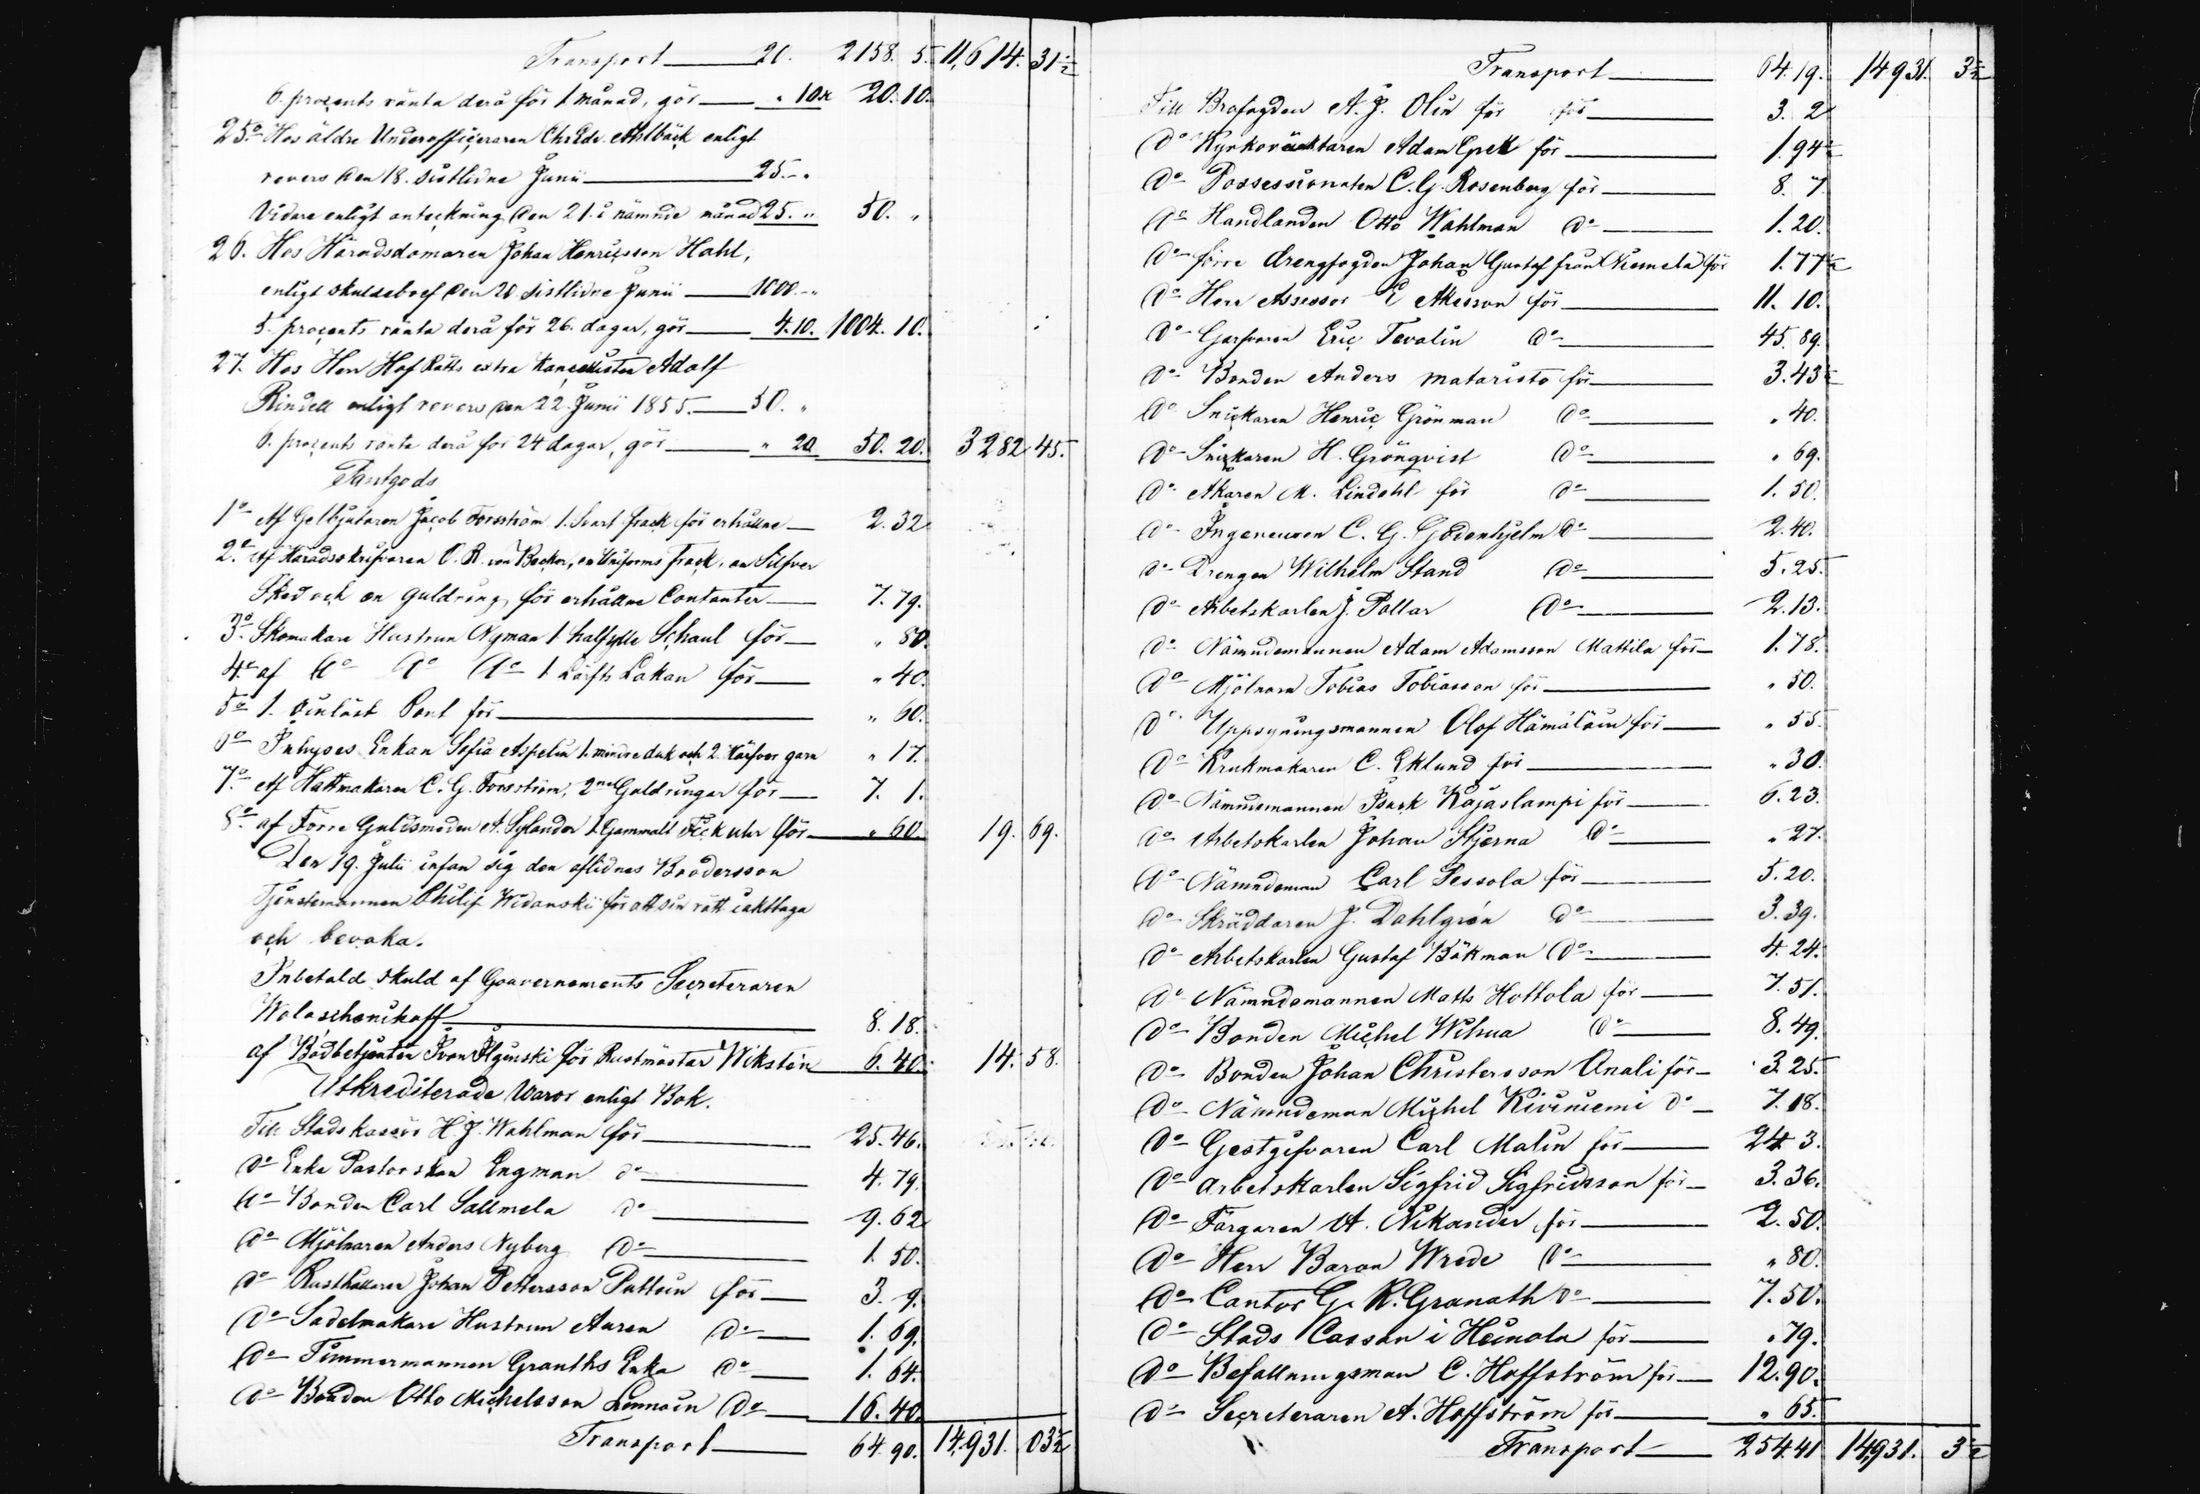 Transport 20. 2158. 5. 11,614. 31½
6. procents ränta derå för 1 månad, gör " 10. 20. 10.
25º Hos äldre Underofficeraren Ahlbäck enligt
revers den 18. sistlidne Junii 25. "
Vidare enligt anteckning den 21. i nämnde månad 25. " 50. "
26. Hos Häradsdomaren Johan Henricsson Hahl,
enligt skuldebref den 20 sistlidne Junii 1000. "
5. procents ränta derå för 26. dagar, gör 4.10. 1004. 10.
27. Hos Herr Hof Rätts extra Kancellisten Adolf
Rindell enligt revers den 22. Junii 1855. 50. "
6. procents ränta derå för 24 dagar, gör " 20 50. 20. 3282 45.
Pantgods
1º Af Gelbjutaren Jacob Forsström 1. Svart frack för erhållne 2. 32
2º Af Häradsskrifvaren O. R. von Becker, en Uniforms Frack, en Silfver
Sked och en guldring för erhållne Contanter 7. 79.
3º Skomakare Hustrun Nyman 1. halfylle Schaul för " 50.
4º af dº dº dº 1 Lärfts Lakan för " 40.
5º 1. oinlöst Pant för " 60.
6º Inhyses Enkan Sofia Aspelin 1. mindre duk och 2. Härfvor garn " 17.
7º Af Hattmakaren C. G. Forsström, 2ne Guldringar för 7. 1.
8º af Förre Guldsmeden A. Sylander 1 Gammalt Fickuhr för " 60. 19. 69.
Den 19. Julii infan sig den aflidnes Brodersson
Tjenstemannen Philip Widanskii för att sin rätt iakttaga
och bevaka.
Inbetald skuld af Gouvernements Secreteraren
Wolaschenikoff 8. 18.
af Bodbetjenten Ivan Ilginski för Rustmästar Wiksten 6. 40. 14. 58.
Utkrediterade Waror enligt Bok.
Till Stadskassör H J. Wahlman för 25. 46.
dº Enke Pastorskan Engman dº 4. 79.
dº Bonden Carl Sallmela dº 9. 62
dº Mjölnaren Anders Nyberg dº 1. 50.
dº Rusthållaren Johan Pettersson Puttoin för 3. 9.
dº Sadelmakare Hustrun Auren dº 1. 69.
dº Timmermannen Granths Enka dº 1. 64.
dº Bonden Otto Michelsson Lonnoin dº 16. 40.
Transport 64. 90. 14,931. 03½
Transport 64. 19. 14931. 3½
Till Brofogden A. J. Olin för för 3. 2
dº Kyrkoväktaren Adam Epell för 1. 94½
dº Possessionaten C. G. Rosenberg för 8. 7.
dº Handlanden Otto Wahlman dº 1. 20.
dº förre drengfogden Johan Gustaf från Niemelä för 1. 77½
dº Herr Assessor E Akesson för 11. 10.
dº Garfvaren Eric Tevalin dº 45. 89.
dº Bonden Anders Mataristo för 3. 43½
dº Snickaren Henric Grönman dº " 40.
dº Snickaren H. Grönqvist dº " 69.
dº Åkaren M. Lindahl för dº 1. 50.
dº Ingeneuren C. G. Gadenhjelm dº 2. 40.
dº Drengen Wilhelm Stand dº 5. 25.
dº Arbetskarlen J. Pallar dº 2. 13.
dº Nämndemannen Adam Adamsson Mattila för 1. 78.
dº Mjölnarn Tobias Tobiasson för " 50.
dº Uppsyningsmannen Olof Hämäläin för " 55.
dº Krukmakaren C. Eklund för " 30.
dº Nämndemannen Isaak Kajaslampi för 6. 23.
dº Arbetskarlen Johan Stjerna dº " 27.
dº Nämndeman Carl Sessola för 5. 20.
dº Skräddaren J. Dahlgren dº 3. 39.
dº Arbetskarlen Gustaf Bökman dº 4. 24.
dº Nämndemannen Matts Hottola för 7. 51.
dº Bonden Michel Wihua dº 8. 49.
dº Bonden Johan Christersson Anali för 3. 25.
dº Nämndeman Michel Kiviniemi dº 7. 18.
dº Gestgifvaren Carl Malin för 24 3.
dº arbetskarlen Sigfrid Sigfridsson för 3. 36.
dº Färgaren A. Nikander för 2. 50.
dº Herr Baron Wrede dº " 80.
dº Cantor G. R. Granath dº 7. 50.
dº Stads Cassan i Heinola för " 79.
dº Befallningsman C. Hoffström för 12. 90.
dº Secreteraren A. Hoffström för " 65.
Transport 254.41 14,931. 3½